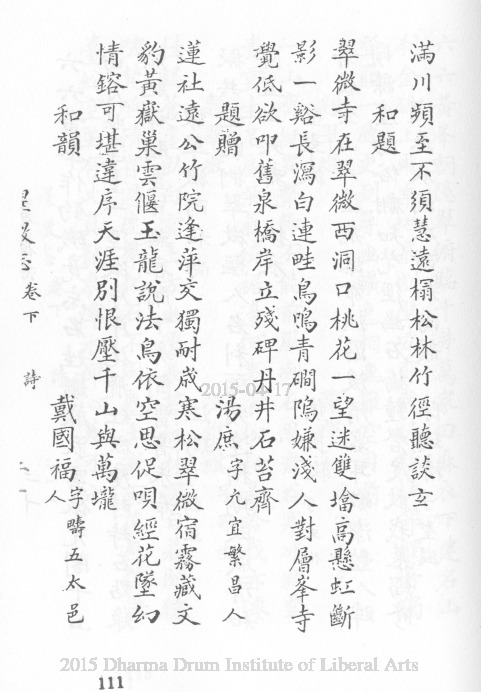 滿川頻至不須慧遠榻松林竹徑聽談玄
和題
翠微寺在翠微西洞口桃花一望迷雙墖高懸虹斷
影一谿長瀉白連畦鳥鳴青磵隖嫌淺人對層峯寺
覺低欲叩舊泉橋岸立殘碑丹井石苔齊
題贈 湯庶字亢宜繁昌人
蓮社遠公竹院逢萍交獨耐歲寒松翠微宿霧藏文
豹黃嶽巢雲偃玉龍說法鳥依空思促唄經花墜幻
情鎔可堪違序天涯別恨壓千山與萬壠
和韻 戴國福字疇五太邑人
卷下 詩
2015-04-17
2015 Dharma Drum Institute of Liberal Arts
111